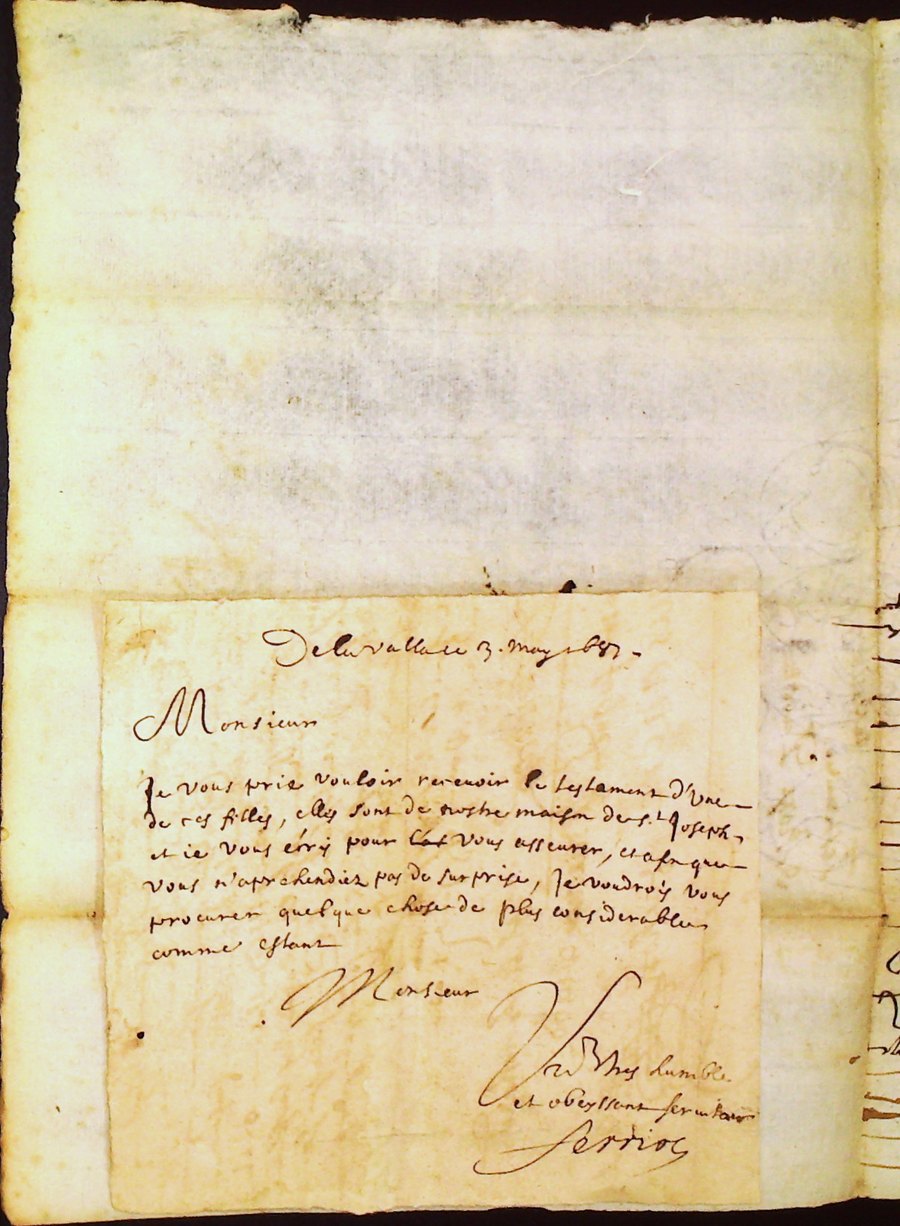 De lavallace 3. may 1687.
Monsieur
Je vous prie vouloir recevoir le testament d'vne
de ces filles, elles sont de nostre maison de s.t Joseph,
et ie vous écris pour vous asseurer, et afin que
vous n'aprehendiez pas de surprise, Je voudrois vous
procurer quelque chose de plus considerable
comme estant
Monsieur
Vre tres humble
et obeyssant serviteur